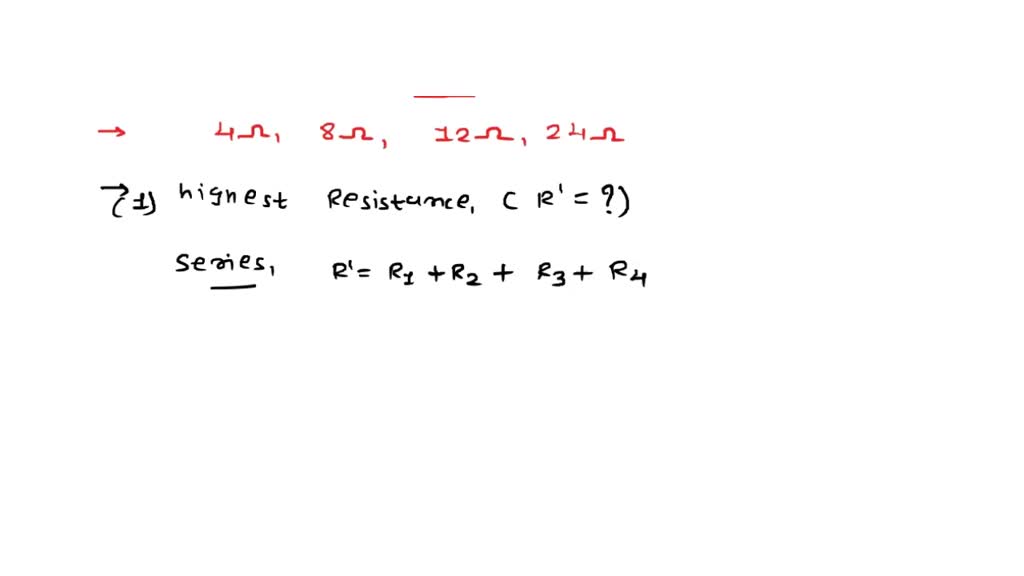 → 4Ω, 8Ω, 12Ω, 24Ω
→(1) highest Resistance, ( R' = ?)
series, R' = R1 + R2 + R3 + R4